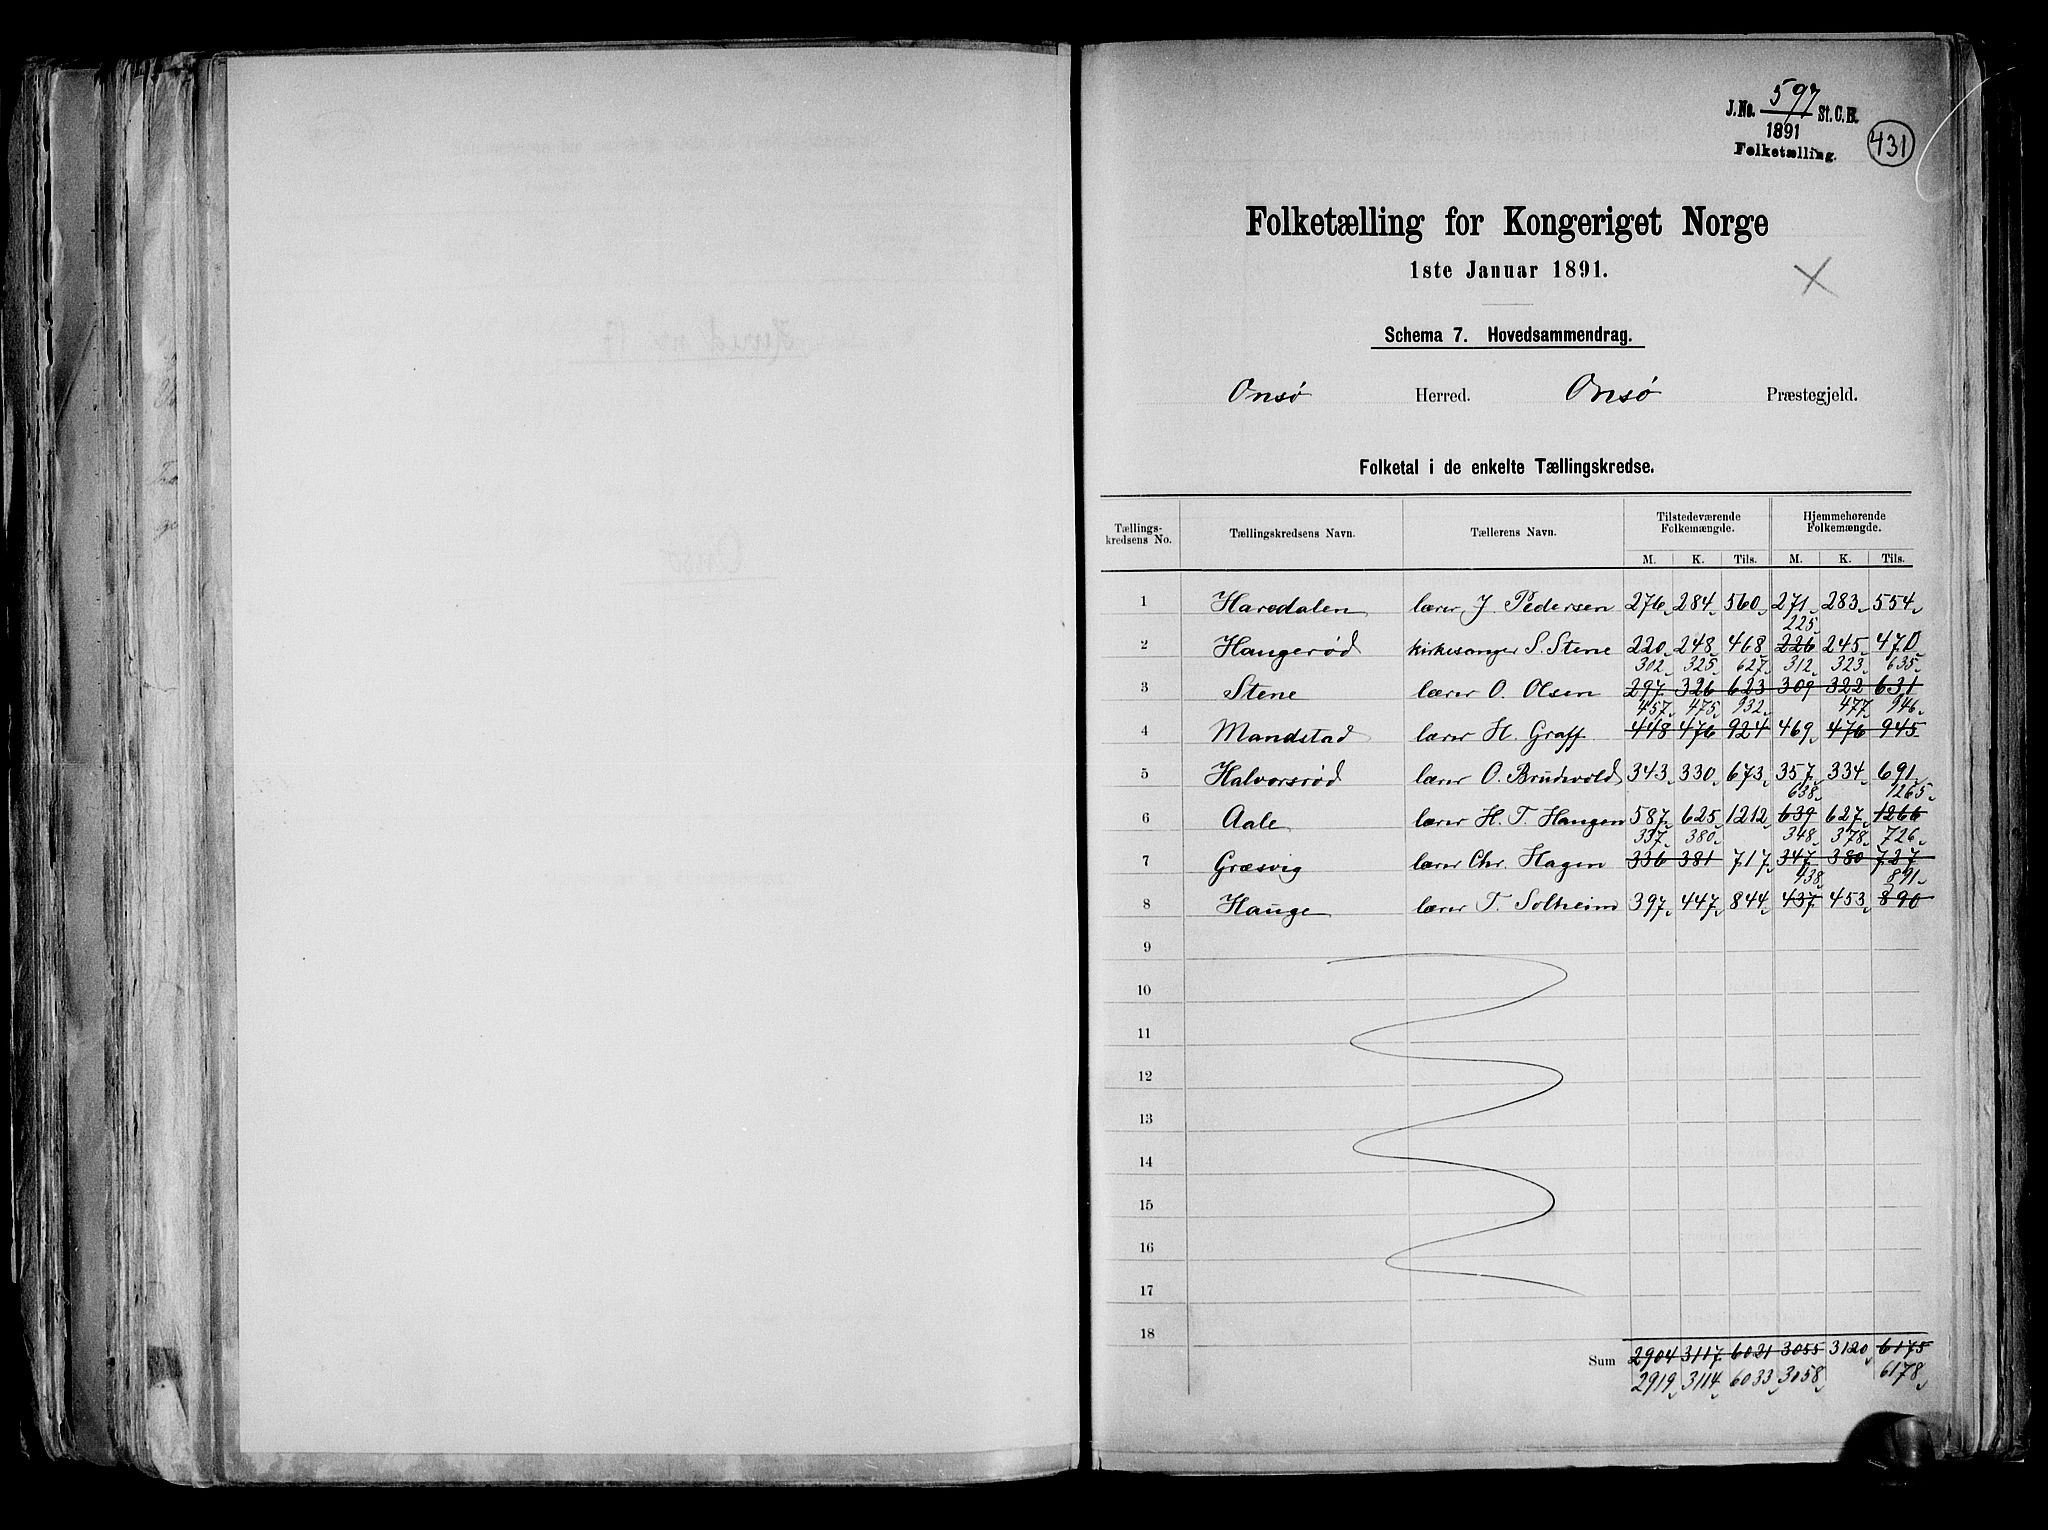 J.No. 597 St. C. B.
1891
Folketælling.
431
Folketælling for Kongeriget Norge
1ste Januar 1891.
Schema 7. Hovedsammendrag.
Onsø Herred. Onsø Præstegjeld.
Folketal i de enkelte Tællingskredse.
Tællings-kredsens No. Tællingskredsens Navn. Tællerens Navn. Tilstedeværende Folkemængde. Hjemmehørende Folkemængde.
M. K. Tils. M. K. Tils.
1 Haredalen lærer J. Pedersen 276 284 560 271 283 554
225
2 Haugerød kirkesanger S. Stene 220 248 468 226 245 470
302 325 627 312 323 635
3 Stene lærer O. Olsen 297 326 623 309 322 631
457 475 932 477 946
4 Mandstad lærer H. Graff 448 476 924 469 476 945
5 Halvorsrød lærer O. Brudevold 343 330 673 357 334 691
638 1265
6 Aale lærer H. T. Haugen 587 625 1212 639 627 1266
337 380 348 378 726
7 Græsvig lærer Chr. Hagen 336 381 717 347 380 727
438 891
8 Hauge lærer T. Solheim 397 447 844 437 453 890
9
10
11
12
13
14
15
16
17
18
Sum 2904 3117 6021 3055 3120 6175
2919 3114 6033 3058 6178